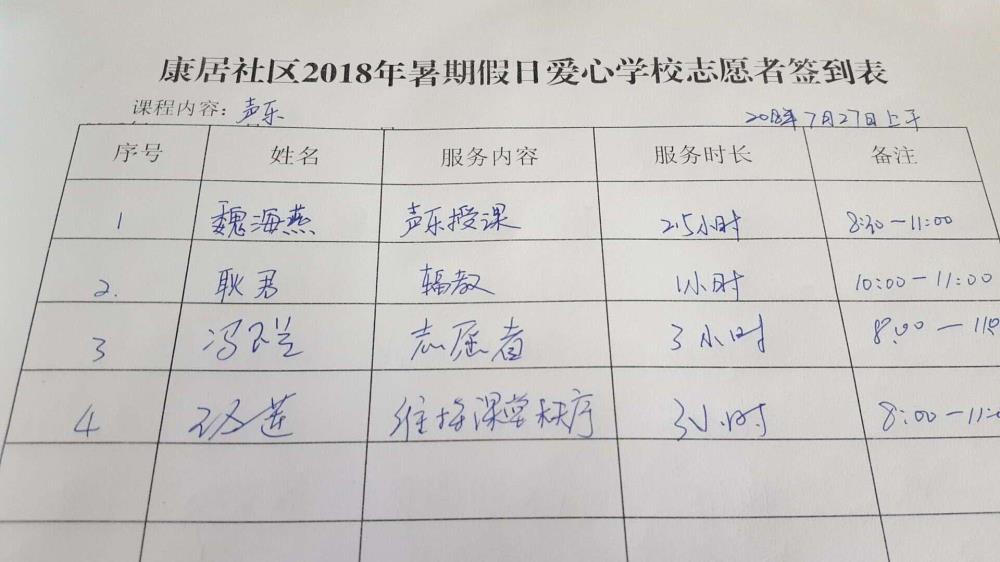 康居社区2018年暑期假日爱心学校志愿者签到表
课程内容：声乐 2018年7月27日上午
序号 姓名 服务内容 服务时长 备注
1 魏海燕 声乐授课 2.5小时 8:30-11:00
2. 耿君 辐教 1小时 10:00-11:00
3 冯 志愿者 3小时 8:00-11:0
4 莲 维持课堂秩序 3小时 8:00-11:0